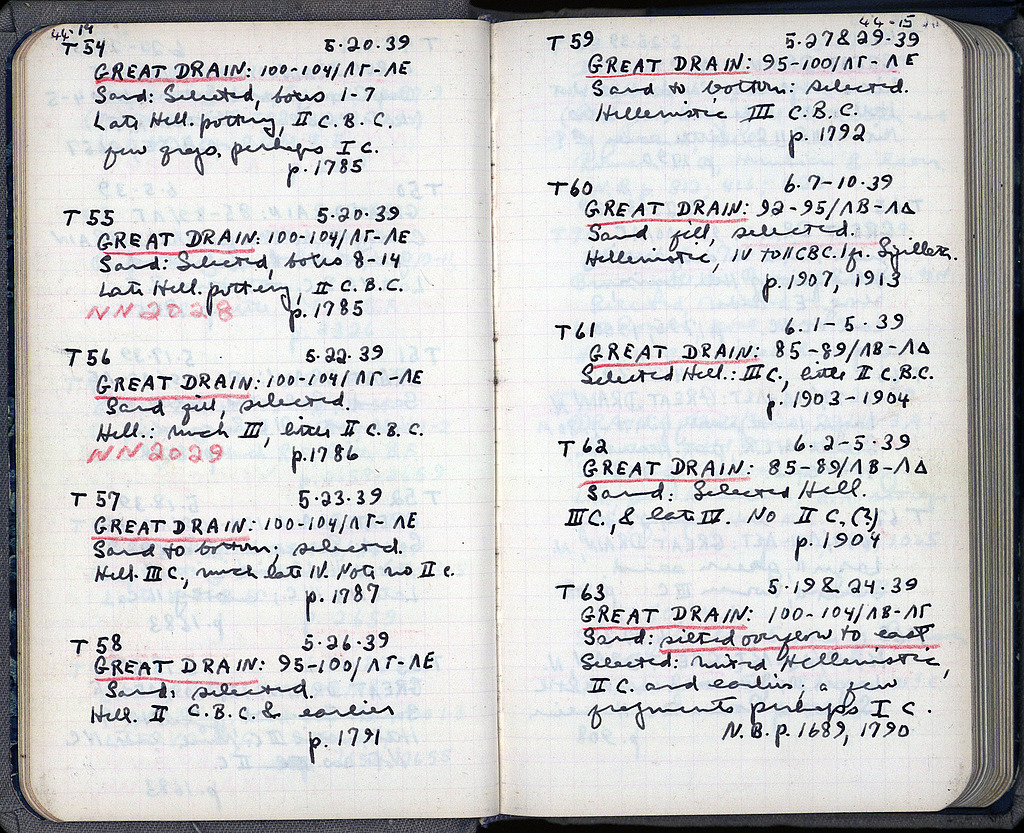 44-14
T 54 5·20·39
GREAT DRAIN: 100-104/ΛΓ-ΛΕ
Sand: Selected, boxes 1-7
Late Hell. pottery, II C. B. C.
few frags, perhaps I C.
p. 1785
T 55 5·20·39
GREAT DRAIN: 100-104/ΛΓ-ΛΕ
Sand: Selected, boxes 8-14
Late Hell. pottery, II C. B. C.
NN 2028 p. 1785
T 56 5·22·39
GREAT DRAIN: 100-104/ΛΓ-ΛΕ
Sand fill, selected.
Hell.: much III, little II C. B. C.
NN 2029 p. 1786
T 57 5·23·39
GREAT DRAIN: 100-104/ΛΓ-ΛΕ
Sand to bottom; selected.
Hell. III C., much late IV. Note no II C.
p. 1787
T 58 5·26·39
GREAT DRAIN: 95-100/ΛΓ-ΛΕ
Sand: selected.
Hell. II C. B. C. & earlier
p. 1791
44-15
T 59 5·27&29·39
GREAT DRAIN: 95-100/ΛΓ-ΛΕ
Sand to bottom: selected.
Hellenistic III C. B. C.
p. 1792
T 60 6·7-10·39
GREAT DRAIN: 92-95/ΛΒ-ΛΔ
Sand fill, selected.
Hellenistic, IV to II C B C. 1 fr.
p. 1907, 1913
T 61 6·1-5·39
GREAT DRAIN: 85-89/ΛΒ-ΛΔ
Selected Hell.: III C., little II C. B. C.
p. 1903-1904
T 62 6·2-5·39
GREAT DRAIN: 85-89/ΛΒ-ΛΔ
Sand: Selected Hell.
III C., & late IV. No II C. (?)
p. 1904
T 63 5·19 & 24·39
GREAT DRAIN: 100-104/ΛΒ-ΛΓ
Sand: silted overflow to east
Selected: mixed Hellenistic,
II C. and earlier; a few
fragments perhaps I C.
N. B. p. 1689, 1790